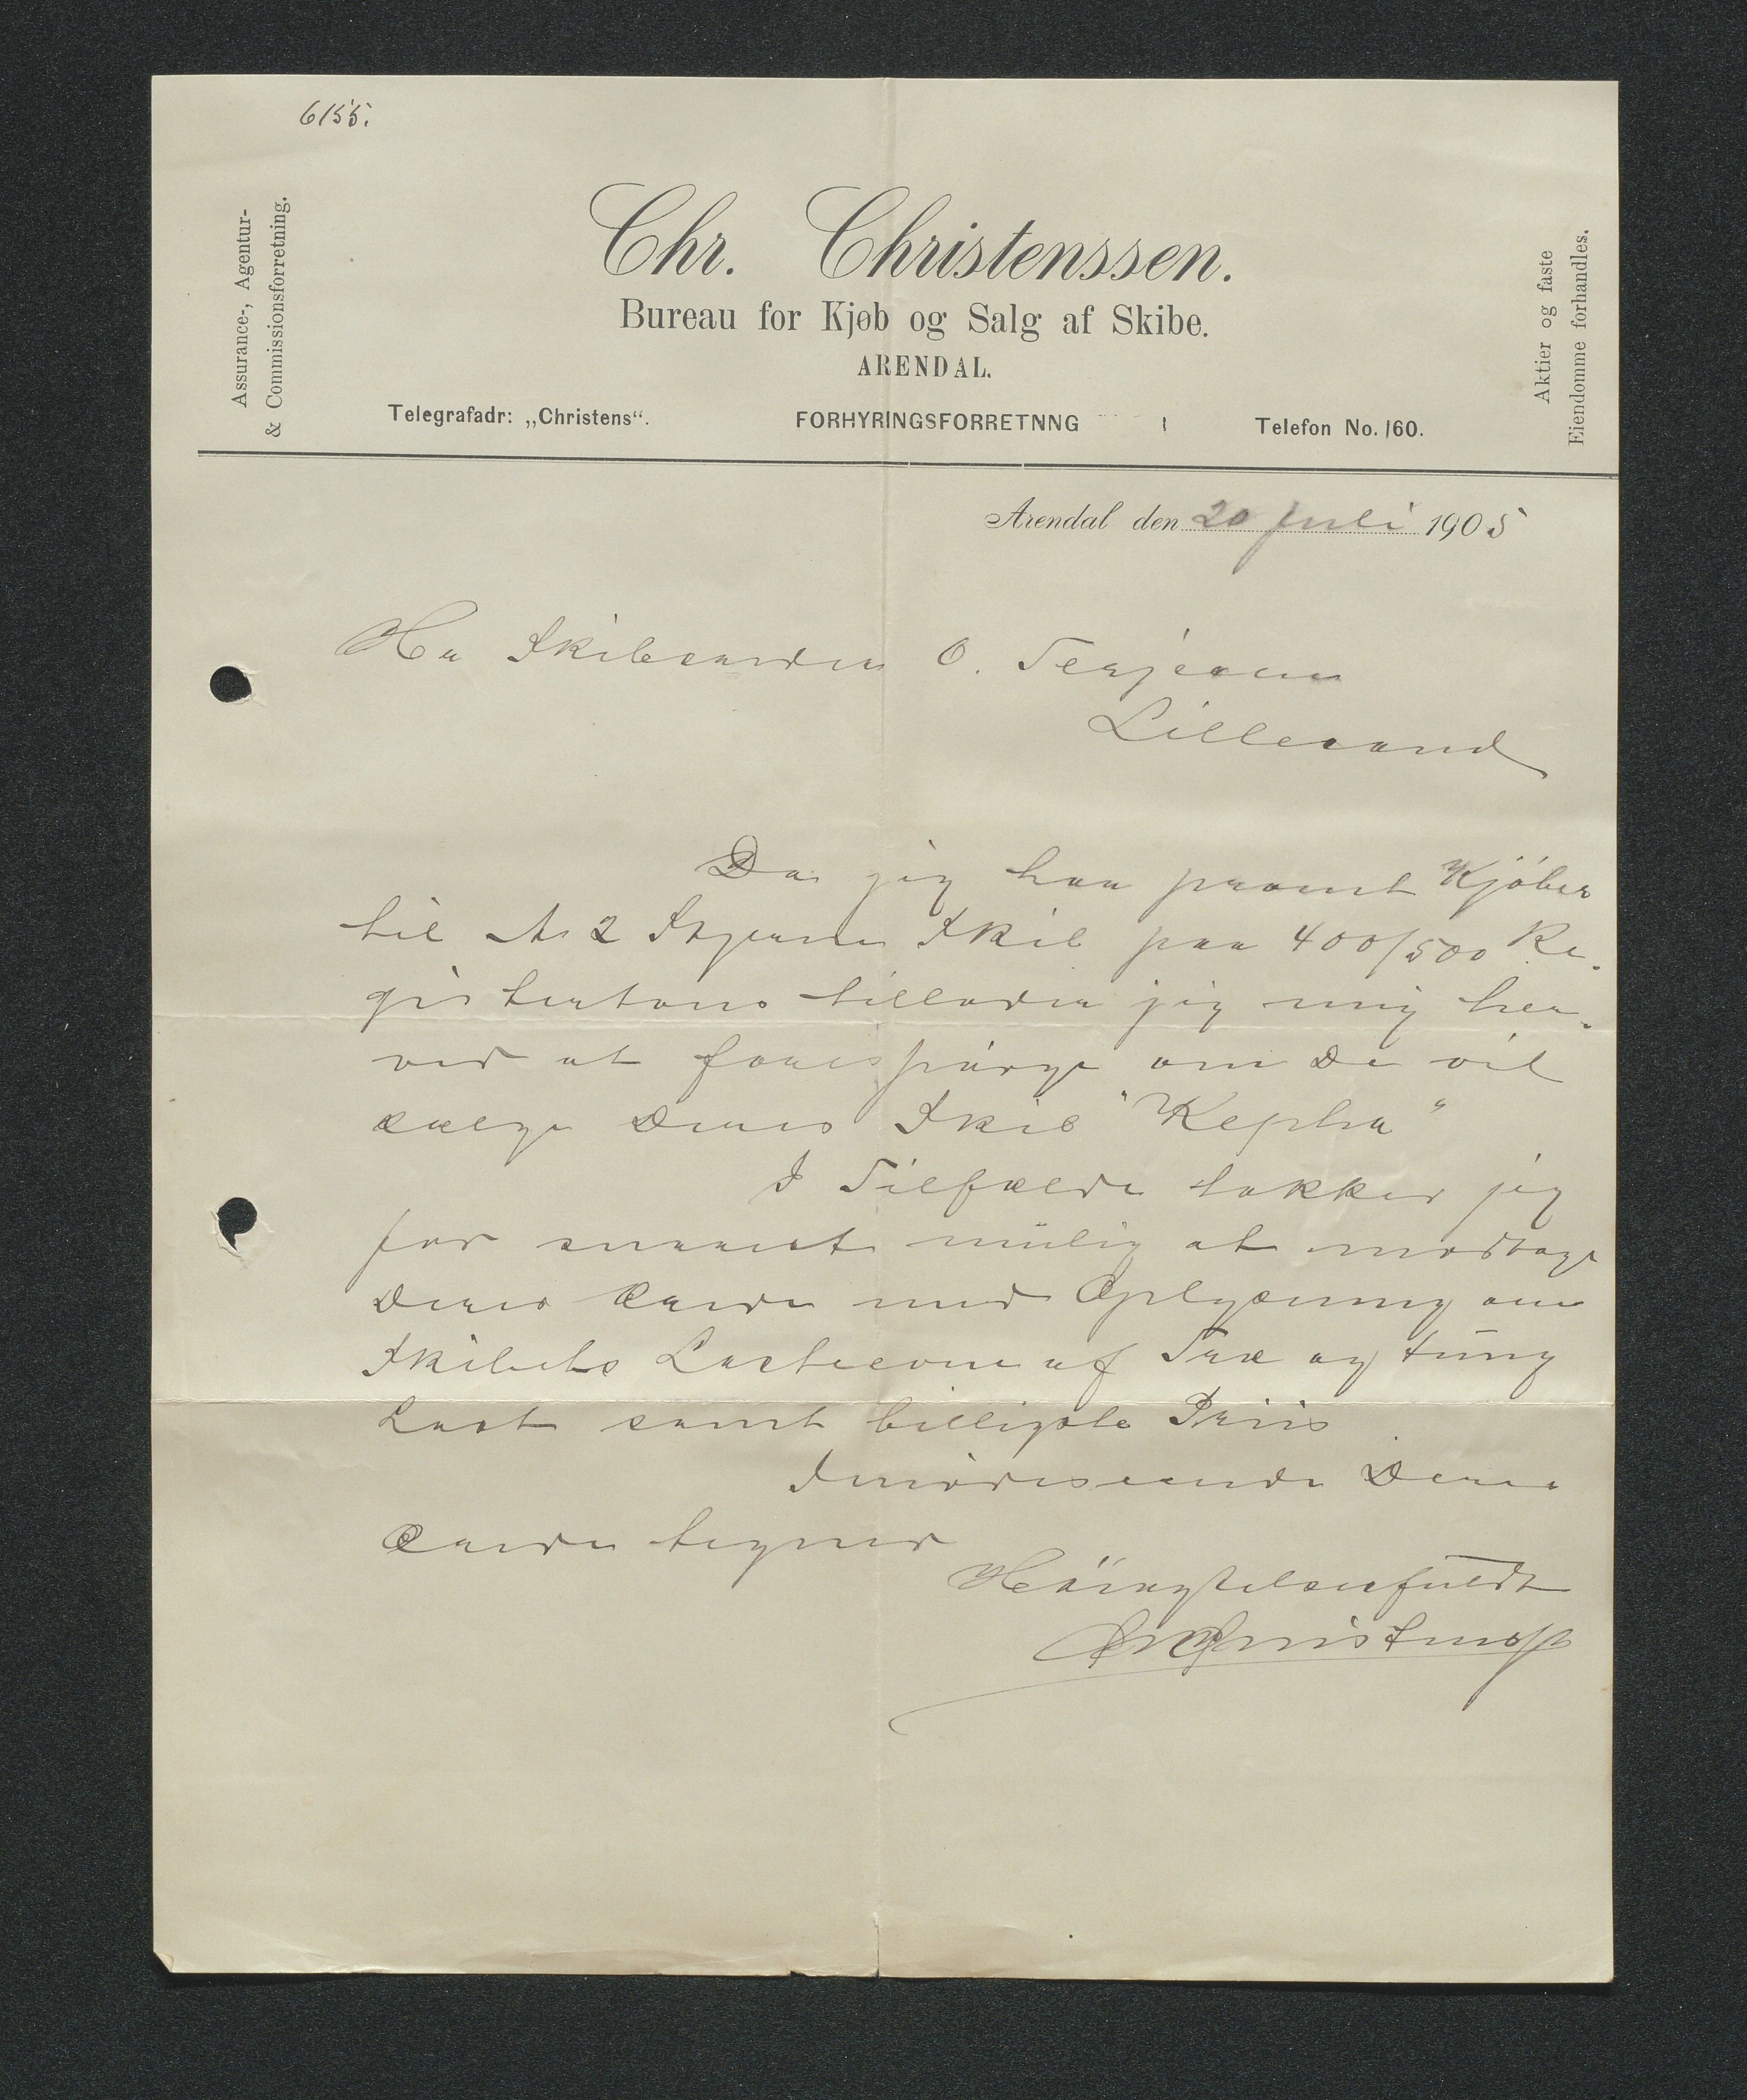 6155.
Assurance-, Agentur-
& Commissionsforretning.
Chr. Christenssen.
Bureau for Kjøb og Salg af Skibe.
ARENDAL.
Telegrafadr: „Christens“. FORHYRINGSFORRETNNG Telefon No. 160.
Aktier og faste
Eiendomme forhandles.
Arendal den 20 Juli 1905
Hr Skibsreder O. Terjesen
Lillesand
Da jeg har prompt Kjøber
til A 2 Skib paa 400/500 Re-
gistertons tillader jeg mig her-
ved at forespørge om De vil
sælge Deres Skib "Kepha"
I Tilfælde takker jeg
for snarest mulig at modtage
Deres Ærede med Oplysning om
Skibets Lasteevne af Træ og tung
Last samt billigste Priis
Imødeseende Deres
Ærede tegner
Høiagtelsesfuldt
Chr Christenssen